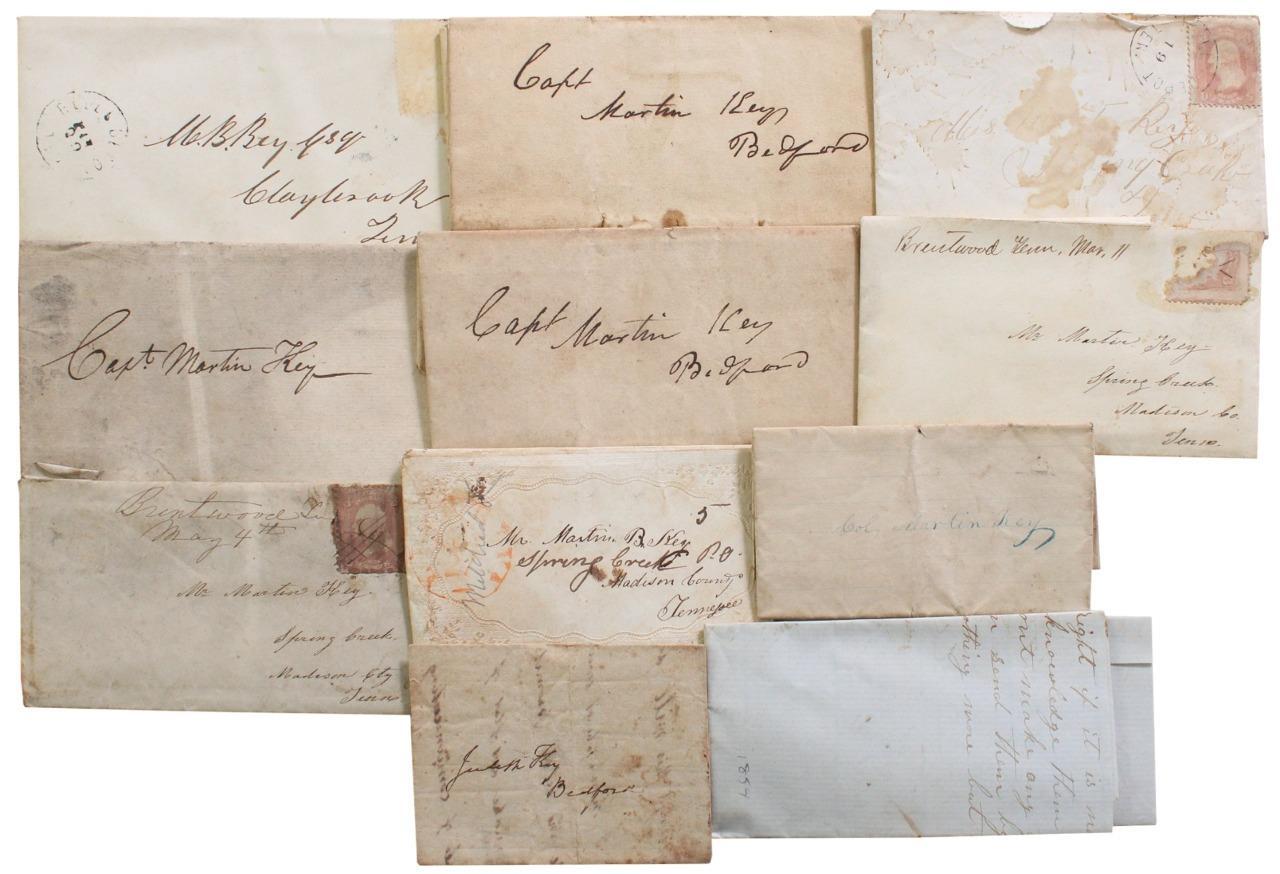 M. B. Key Esq
Claybrook
Ten
Capt
Martin Key
Bedford
19
OCT
Capt. Martin Key
Capt Martin Key
Bedford
Brentwood Tenn, Mar, 11
Mr Martin Key
Spring Creek
Madison Co.
Tenn.
Brentwood
May 4th
Mr Martin Key.
Spring Creek.
Madison Cty
Tenn
5
Mr. Martin B. Key
Spring Creek P.O.
Madison County
Tennessee
Col. Martin Key
Judith Key
Bedford
right if it is
knowledge them
make any
send them by
thing more but
1854